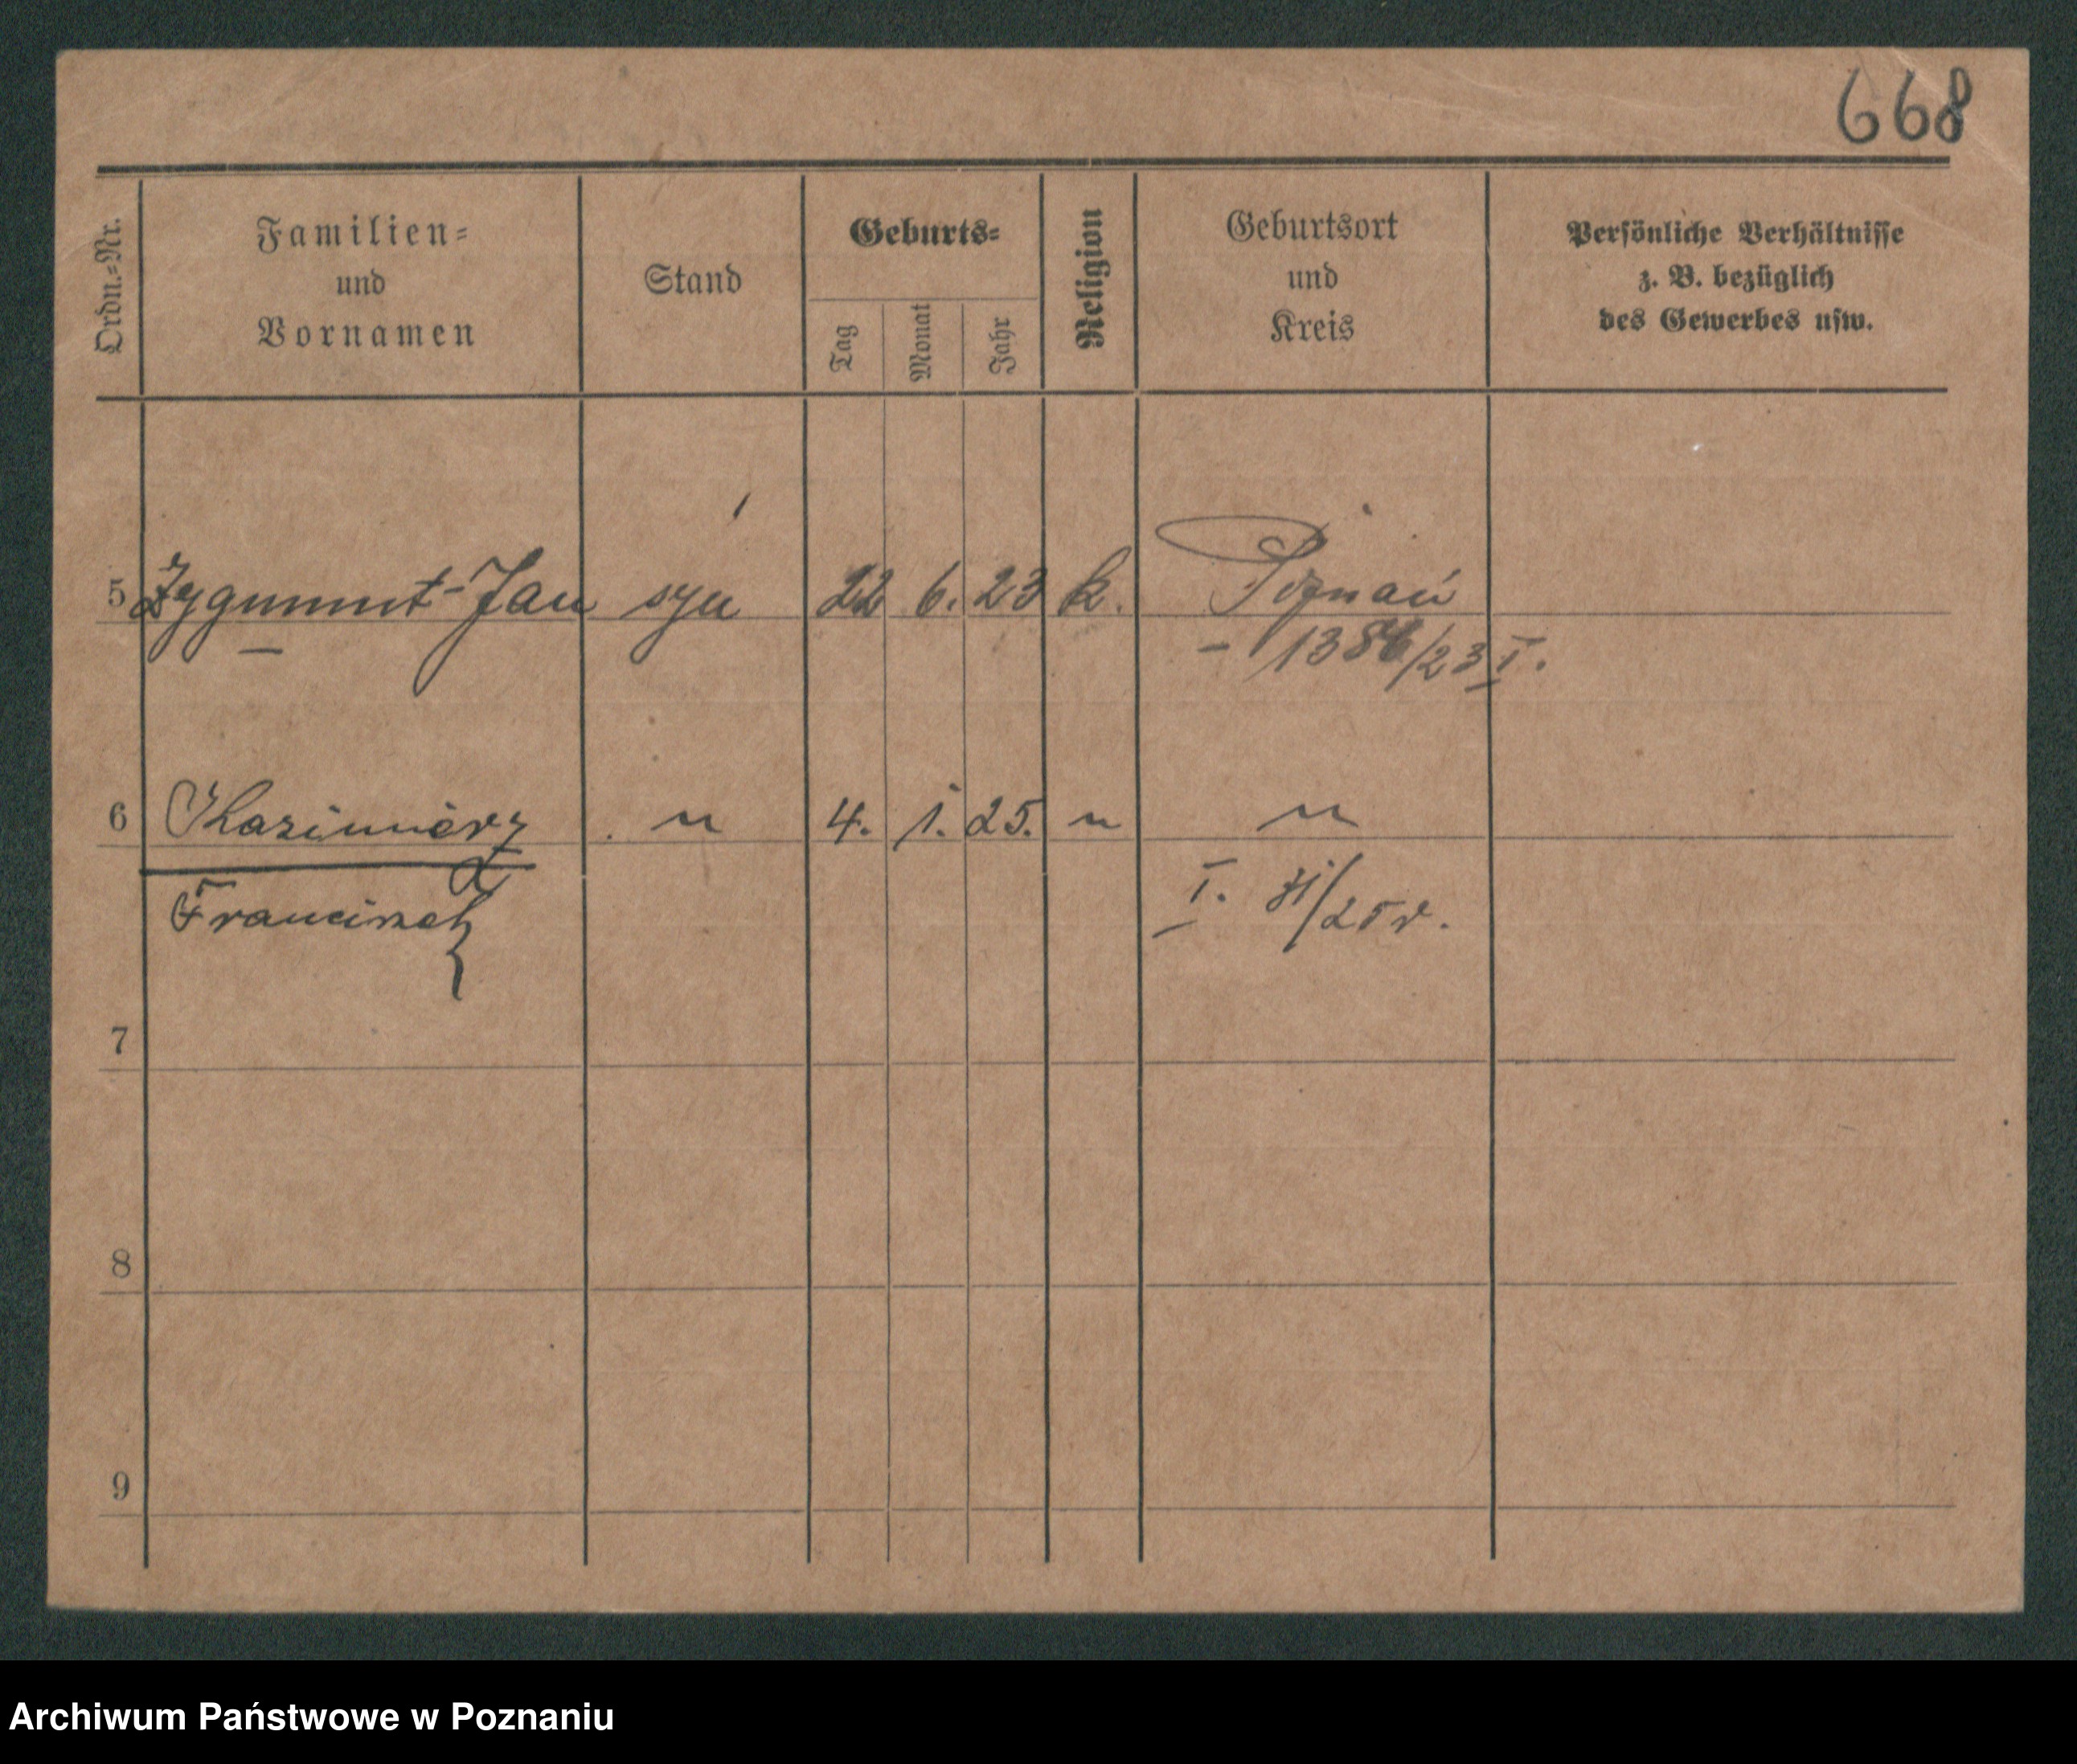 668
Ordn.-Nr.
Familien-
und
Vornamen
Stand
Geburts-
Tag
Monat
Jahr
Religion
Geburtsort
und
Kreis
Persönliche Verhältnisse
z. B. bezüglich
des Gewerbes usw.
5 Zygmunt-Jan syn 22 6. 23 k. Poznań
/23 I.
6 Kazimierz " 4. 1. 25. " "
Franciszek I. /25 r.
7
8
9
Archiwum Państwowe w Poznaniu